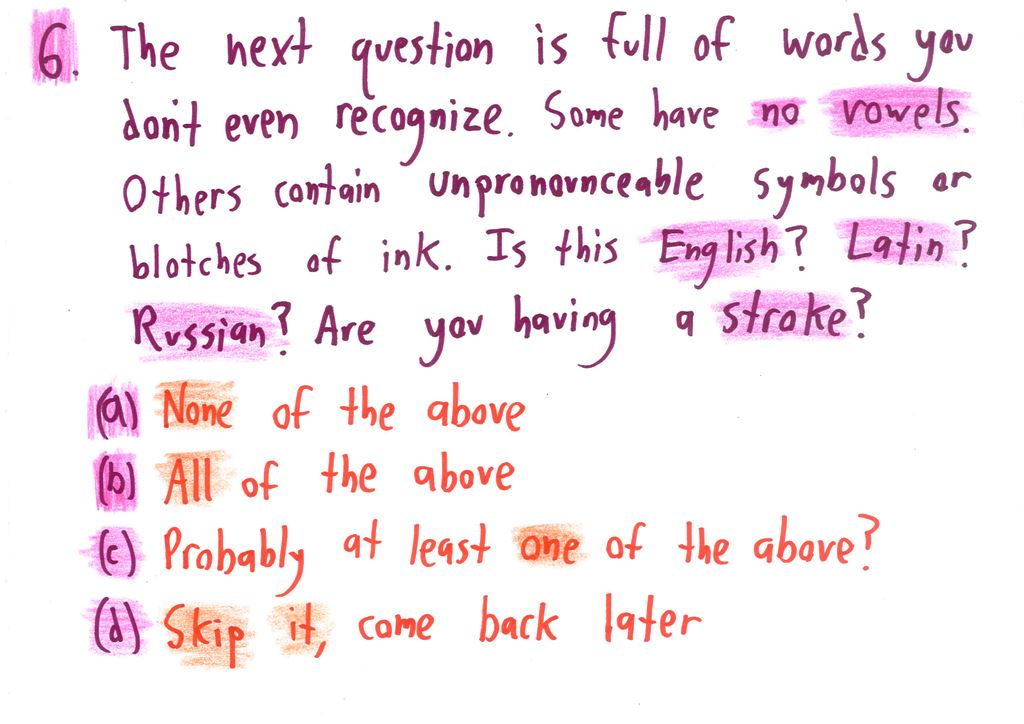 6. The next question is full of words you
don't even recognize. Some have no vowels.
Others contain unpronounceable symbols or
blotches of ink. Is this English? Latin?
Russian? Are you having a stroke?
(a) None of the above
(b) All of the above
(c) Probably at least one of the above?
(d) Skip it, come back later